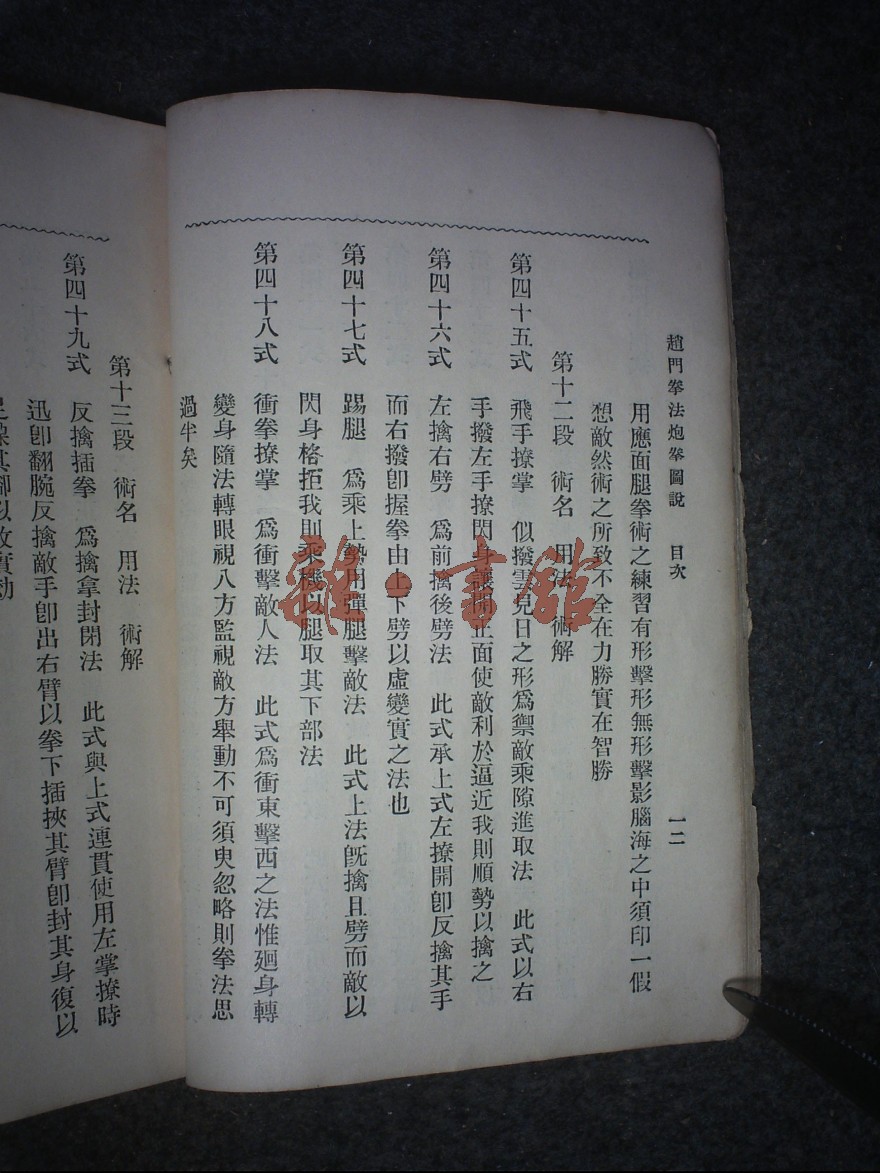 趙門拳法炮拳圖說 目次 一二
用應面腿拳術之練習有形擊形無形擊影腦海之中須印一假
想敵然術之所致不全在力勝實在智勝
第十二段 術名 用法 術解
第四十五式 飛手撩掌 似撥雲見日之形爲禦敵乘隙進取法 此式以右
手撥左手撩閃身讓開正面使敵利於逼近我則順勢以擒之
第四十六式 左擒右劈 爲前擒後劈法 此式承上式左撩開卽反擒其手
而右撥卽握拳由上下劈以虛變實之法也
第四十七式 踢腿 爲乘上勢用彈腿擊敵法 此式上法旣擒且劈而敵以
閃身格拒我則乘機以腿取其下部法
第四十八式 衝拳撩掌 爲衝擊敵人法 此式爲衝東擊西之法惟廻身轉
變身隨法轉眼視八方監視敵方舉動不可須臾忽略則拳法思
過半矣
第十三段 術名 用法 術解
第四十九式 反擒插拳 爲擒拿封閉法 此式與上式連貫使用左掌撩時
迅卽翻腕反擒敵手卽出右臂以拳下插挾其臂卽封其身復以
雜·書館